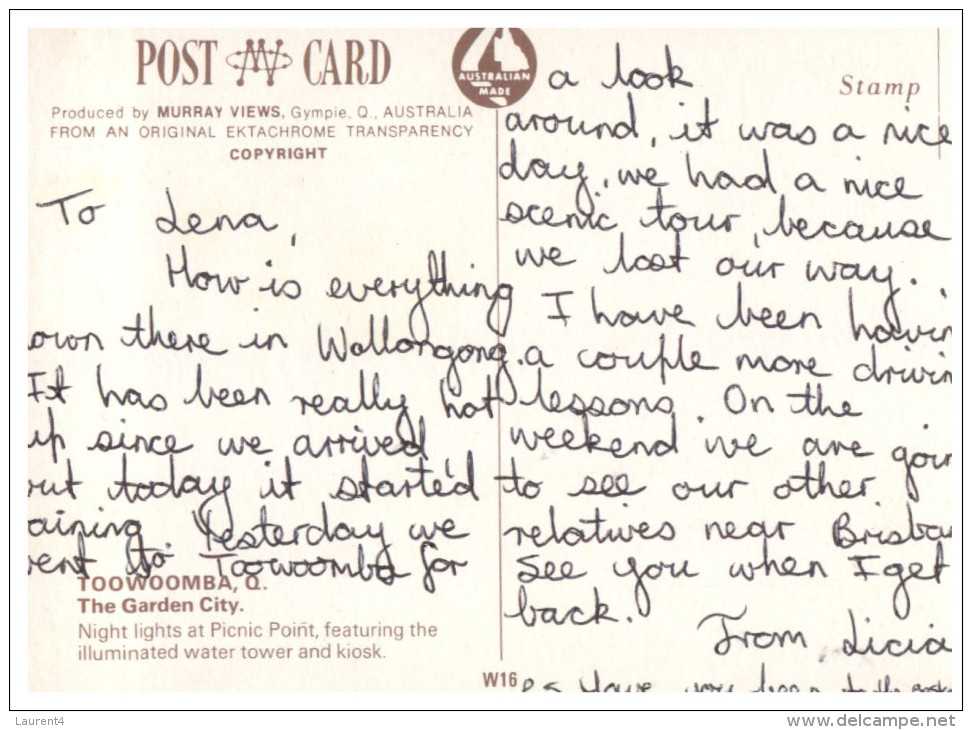 POST CARD
AUSTRALIAN
MADE
Produced by MURRAY VIEWS, Gympie, Q., AUSTRALIA
FROM AN ORIGINAL EKTACHROME TRANSPARENCY
COPYRIGHT
Stamp
To Lena,
How is everything
own there in Wollongong.
It has been really hot
up since we arrived
out today it start'ed
aining. Yesterday we
vent to Toowoomba for
TOOWOOMBA, Q.
The Garden City.
Night lights at Picnic Point, featuring the
illuminated water tower and kiosk.
a look
around, it was a nice
day, we had a nice
scenic tour, because
we lost our way.
I have been havin
a couple more drivin
lessons. On the
weekend we are goin
to see our other
relatives near Brisba
See you when I get
back.
From Licia
W16
P.S Have you been to the
Laurent4
www.delcampe.net